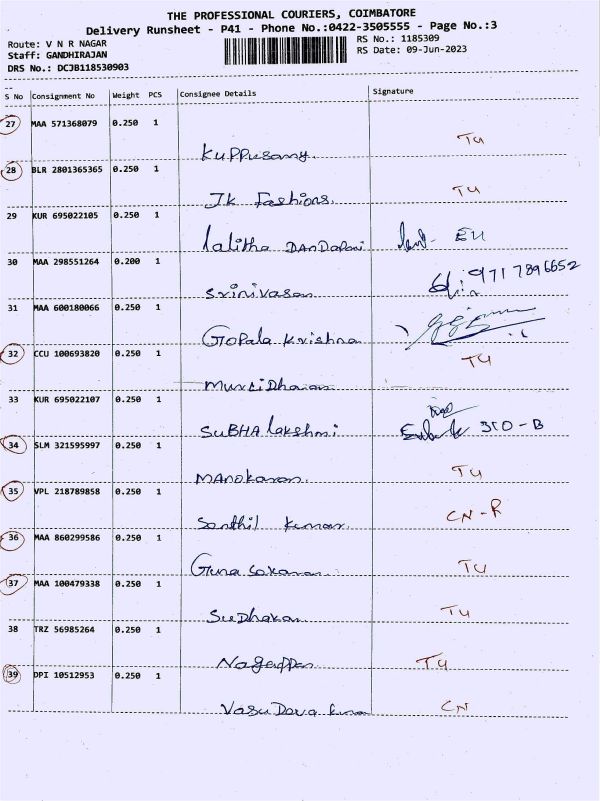 THE PROFESSIONAL COURIERS, COIMBATORE
Delivery Runsheet - P41 - Phone No.:0422-3505555 - Page No.:3
Route: V N R NAGAR RS No.: 1185309
Staff: GANDHIRAJAN RS Date: 09-Jun-2023
DRS No.: DCJB118530903
S No Consignment No Weight PCS Consignee Details Signature
27 MAA 571368079 0.250 1
Kuppusamy TU
28 BLR 2801365365 0.250 1
JK Fashions. TU
29 KUR 695022105 0.250 1
Lalitha DanDapani
30 MAA 298551264 0.200 1
Srinivasan 9717896652
31 MAA 600180066 0.250 1
Gopala Krishna
32 CCU 100693820 0.250 1 TU
MurliDharan
33 KUR 695022107 0.250 1
SUBHA lakshmi 310-B
34 SLM 321595997 0.250 1
Manokaran. TU
35 VPL 218789858 0.250 1
Senthil Kumar CN-R
36 MAA 860299586 0.250 1
Guna Sekaran TU
37 MAA 100479338 0.250 1
SuDhakar TU
38 TRZ 56985264 0.250 1
Nagappan TU
39 DPI 10512953 0.250 1
Vasu Deva Kumar CN